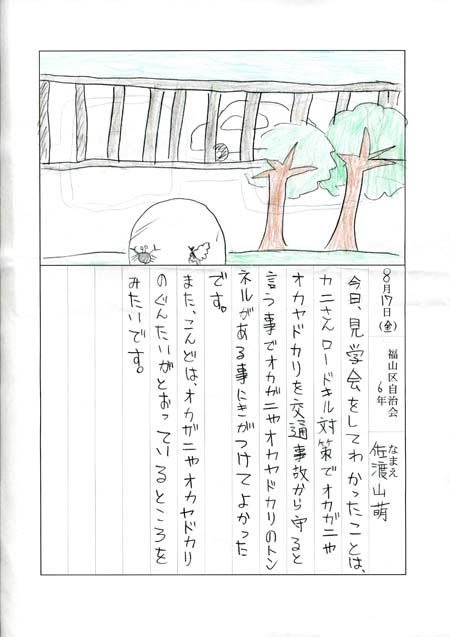 8月17日(金) 福山区自治会 6年 なまえ 佐渡山萌
今日、見学会をしてわかったことは、
カニさんロードキル対策でオカガニや
オカヤドカリを交通事故から守ると
言う事でオカガニやオカヤドカリのトン
ネルがある事にきがつけてよかった
です。
また、こんどは、オカガニやオカヤドカリ
のぐんたいがとおっているところを
みたいです。